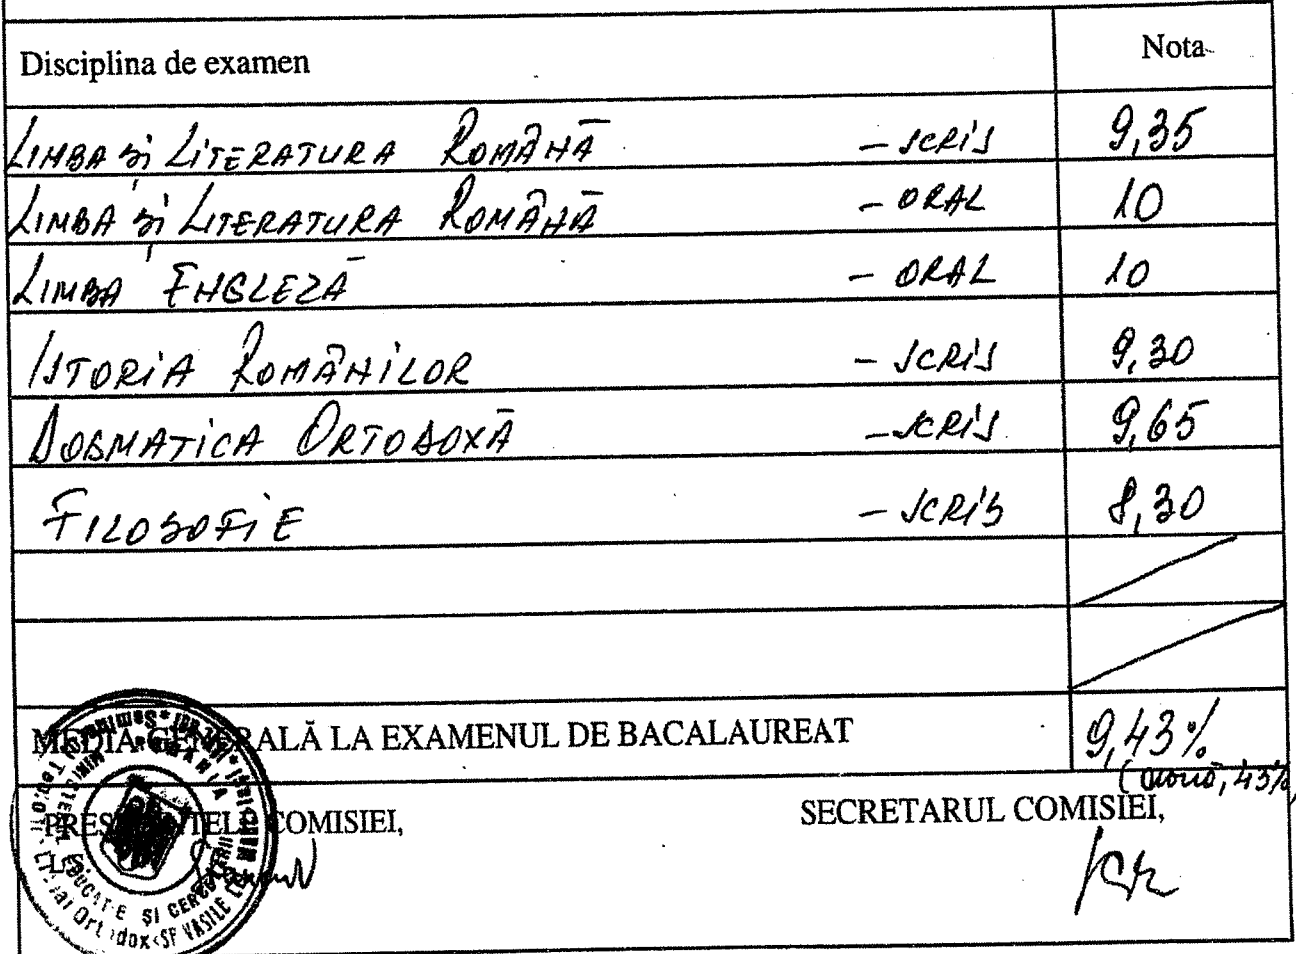 Disciplina de examen Nota
LIMBA și LITERATURA ROMÂNĂ – SCRIS 9,35
LIMBA și LITERATURA ROMÂNĂ – ORAL 10
LIMBA ENGLEZĂ – ORAL 10
ISTORIA ROMÂNILOR – SCRIS 9,30
DOGMATICA ORTODOXĂ – SCRIS 9,65
FILOSOFIE – SCRIS 8,30
MEDIA GENERALĂ LA EXAMENUL DE BACALAUREAT 9,43%
(nouă, 43%
PREȘEDINTELE COMISIEI, SECRETARUL COMISIEI,
ROMANIA
EDUCAȚIE ȘI CERCETĂRII
Ortodox SF VASILE